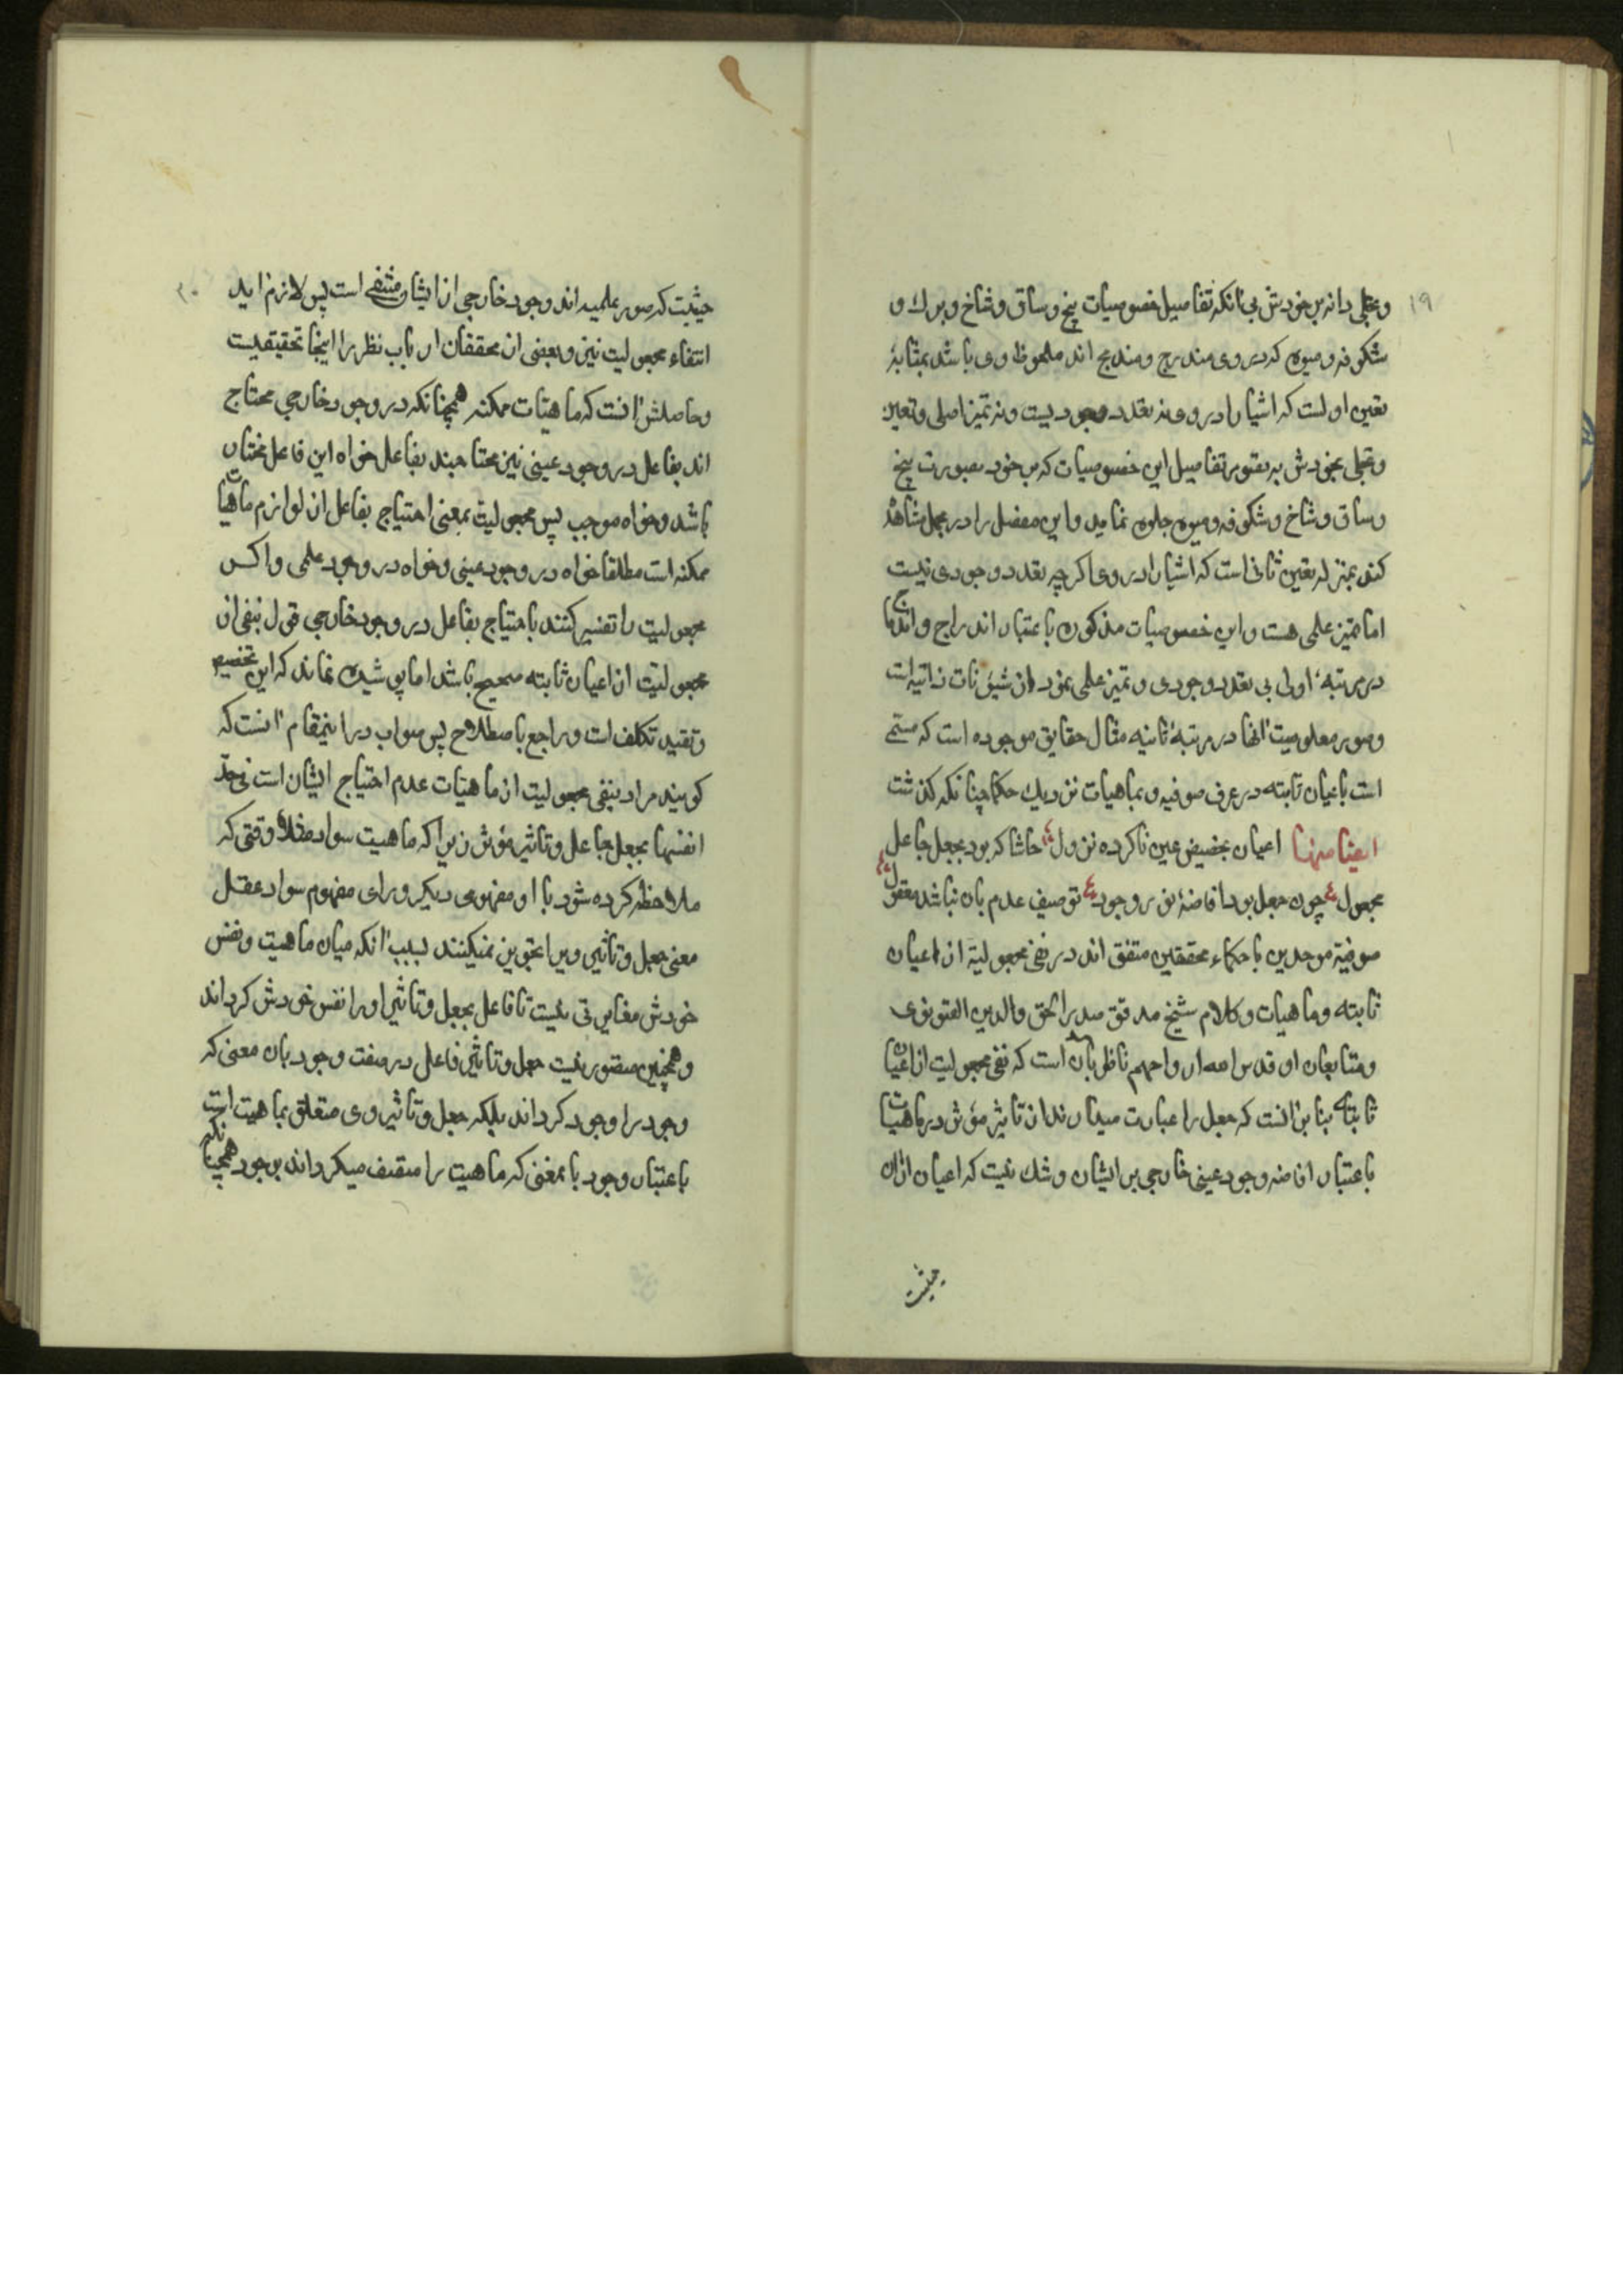 ۱۹
و تجلی دانه بر خودش بی آنکه تفاصیل خصوصیات بیخ و ساق و شاخ و برك و
شکوفه و میوه که در وی مندرج و مندمج اند ملحوظ وی باشد بمثابهٔ
تعین اولست که اشیا را در وی نه تعدد وجودیست و نه تمیز اصلی و تعین
و تجلی بخودش به تصور تفاصیل این خصوصیات که بر خود بصورت بیخ
و ساق و شاخ و شکوفه و میوه جلوه نماید و این مفصل را در مجمل مشاهده
کند بمنزله تعین ثانی است که اشیا را در وی اکرچه تعدد وجودی نیست
اما تمیز علمی هست و این خصوصیات مذکوره باعتبار اندراج و اندماج
در مرتبهٔ اولی بی تعدد وجودی و تمیز علمی نمودار شیونات ذاتیه است
و صور معلومیت آنها در مرتبهٔ ثانیه مثال حقایق موجوده است که مسمی
است باعیان ثابته در عرف صوفیه و بماهیات نزدیك حکما چنانکه کذشت
ایضا منها اعیان بحضیض عین ناکرده نزول ع حاشا که بود بجعل جاعل
مجعول ع چون جعل بود افاضهٔ نور وجود ع توصیف عدم بان نباشد معقول ع
صوفیهٔ موحدین با حکماء محققین متفق اند در نفی مجعولیة از اعیان
ثابته و ماهیات و کلام شیخ مدقق صدر الحق والدین القونوی
و متابعان او قدس الله ارواحهم ناظر بان است که نفی مجعولیت از اعیان
ثابته بنابر انست که جعل را عبارت میدارند از تاثیر مؤثر در ماهیات
باعتبار افاضه وجود عینی خارجی بر ایشان و شك نیست که اعیان ازان
حیثیت
۲۰
حیثیت که صور علمیه اند وجود خارجی از ایشان منتفی است پس لازم اید
انتفاء مجعولیت نیز و بعضی از محققان ارباب نظر را اینجا تحقیقیست
و حاصلش انست که ماهیات ممکنه همچنانکه در وجود خارجی محتاج
اند بفاعل در وجود عینی نیز محتاجند بفاعل خواه این فاعل مختار
باشد و خواه موجب پس مجعولیت بمعنی احتیاج بفاعل از لوازم ماهیات
ممکنه است مطلقا خواه در وجود عینی و خواه در وجود علمی و اکر
مجعولیت را تفسیر کنند باحتیاج بفاعل در وجود خارجی قول بنفی ان
مجعولیت از اعیان ثابته صحیح باشد اما پوشیده نماند که این تخصیص
و تقیید تکلف است و راجع باصطلاح پس صواب در اینمقام انست که
کویند مراد بنفی مجعولیت از ماهیات عدم احتیاج ایشان است فی حد
انفسها بجعل جاعل و تاثیر مؤثر زیرا که ماهیت سواد مثلا وقتی که
ملاحظه کرده شود با او مفهومی دیکر ورای مفهوم سواد عقل
معنی جعل و تاثیر ویرا تجویز نمیکنند بسبب آنکه میان ماهیت و نفس
خودش مغایرتی نیست تا فاعل بجعل و تاثیر او را نفس خودش کرداند
و همچنین متصور نیست جعل و تاثیر فاعلی در صفت وجود بان معنی که
وجود را وجود کرداند بلکه جعل و تاثیر وی متعلق بماهیت است
باعتبار وجود بامعنی که ماهیت را متصف میکرداند بوجود همچنانکه